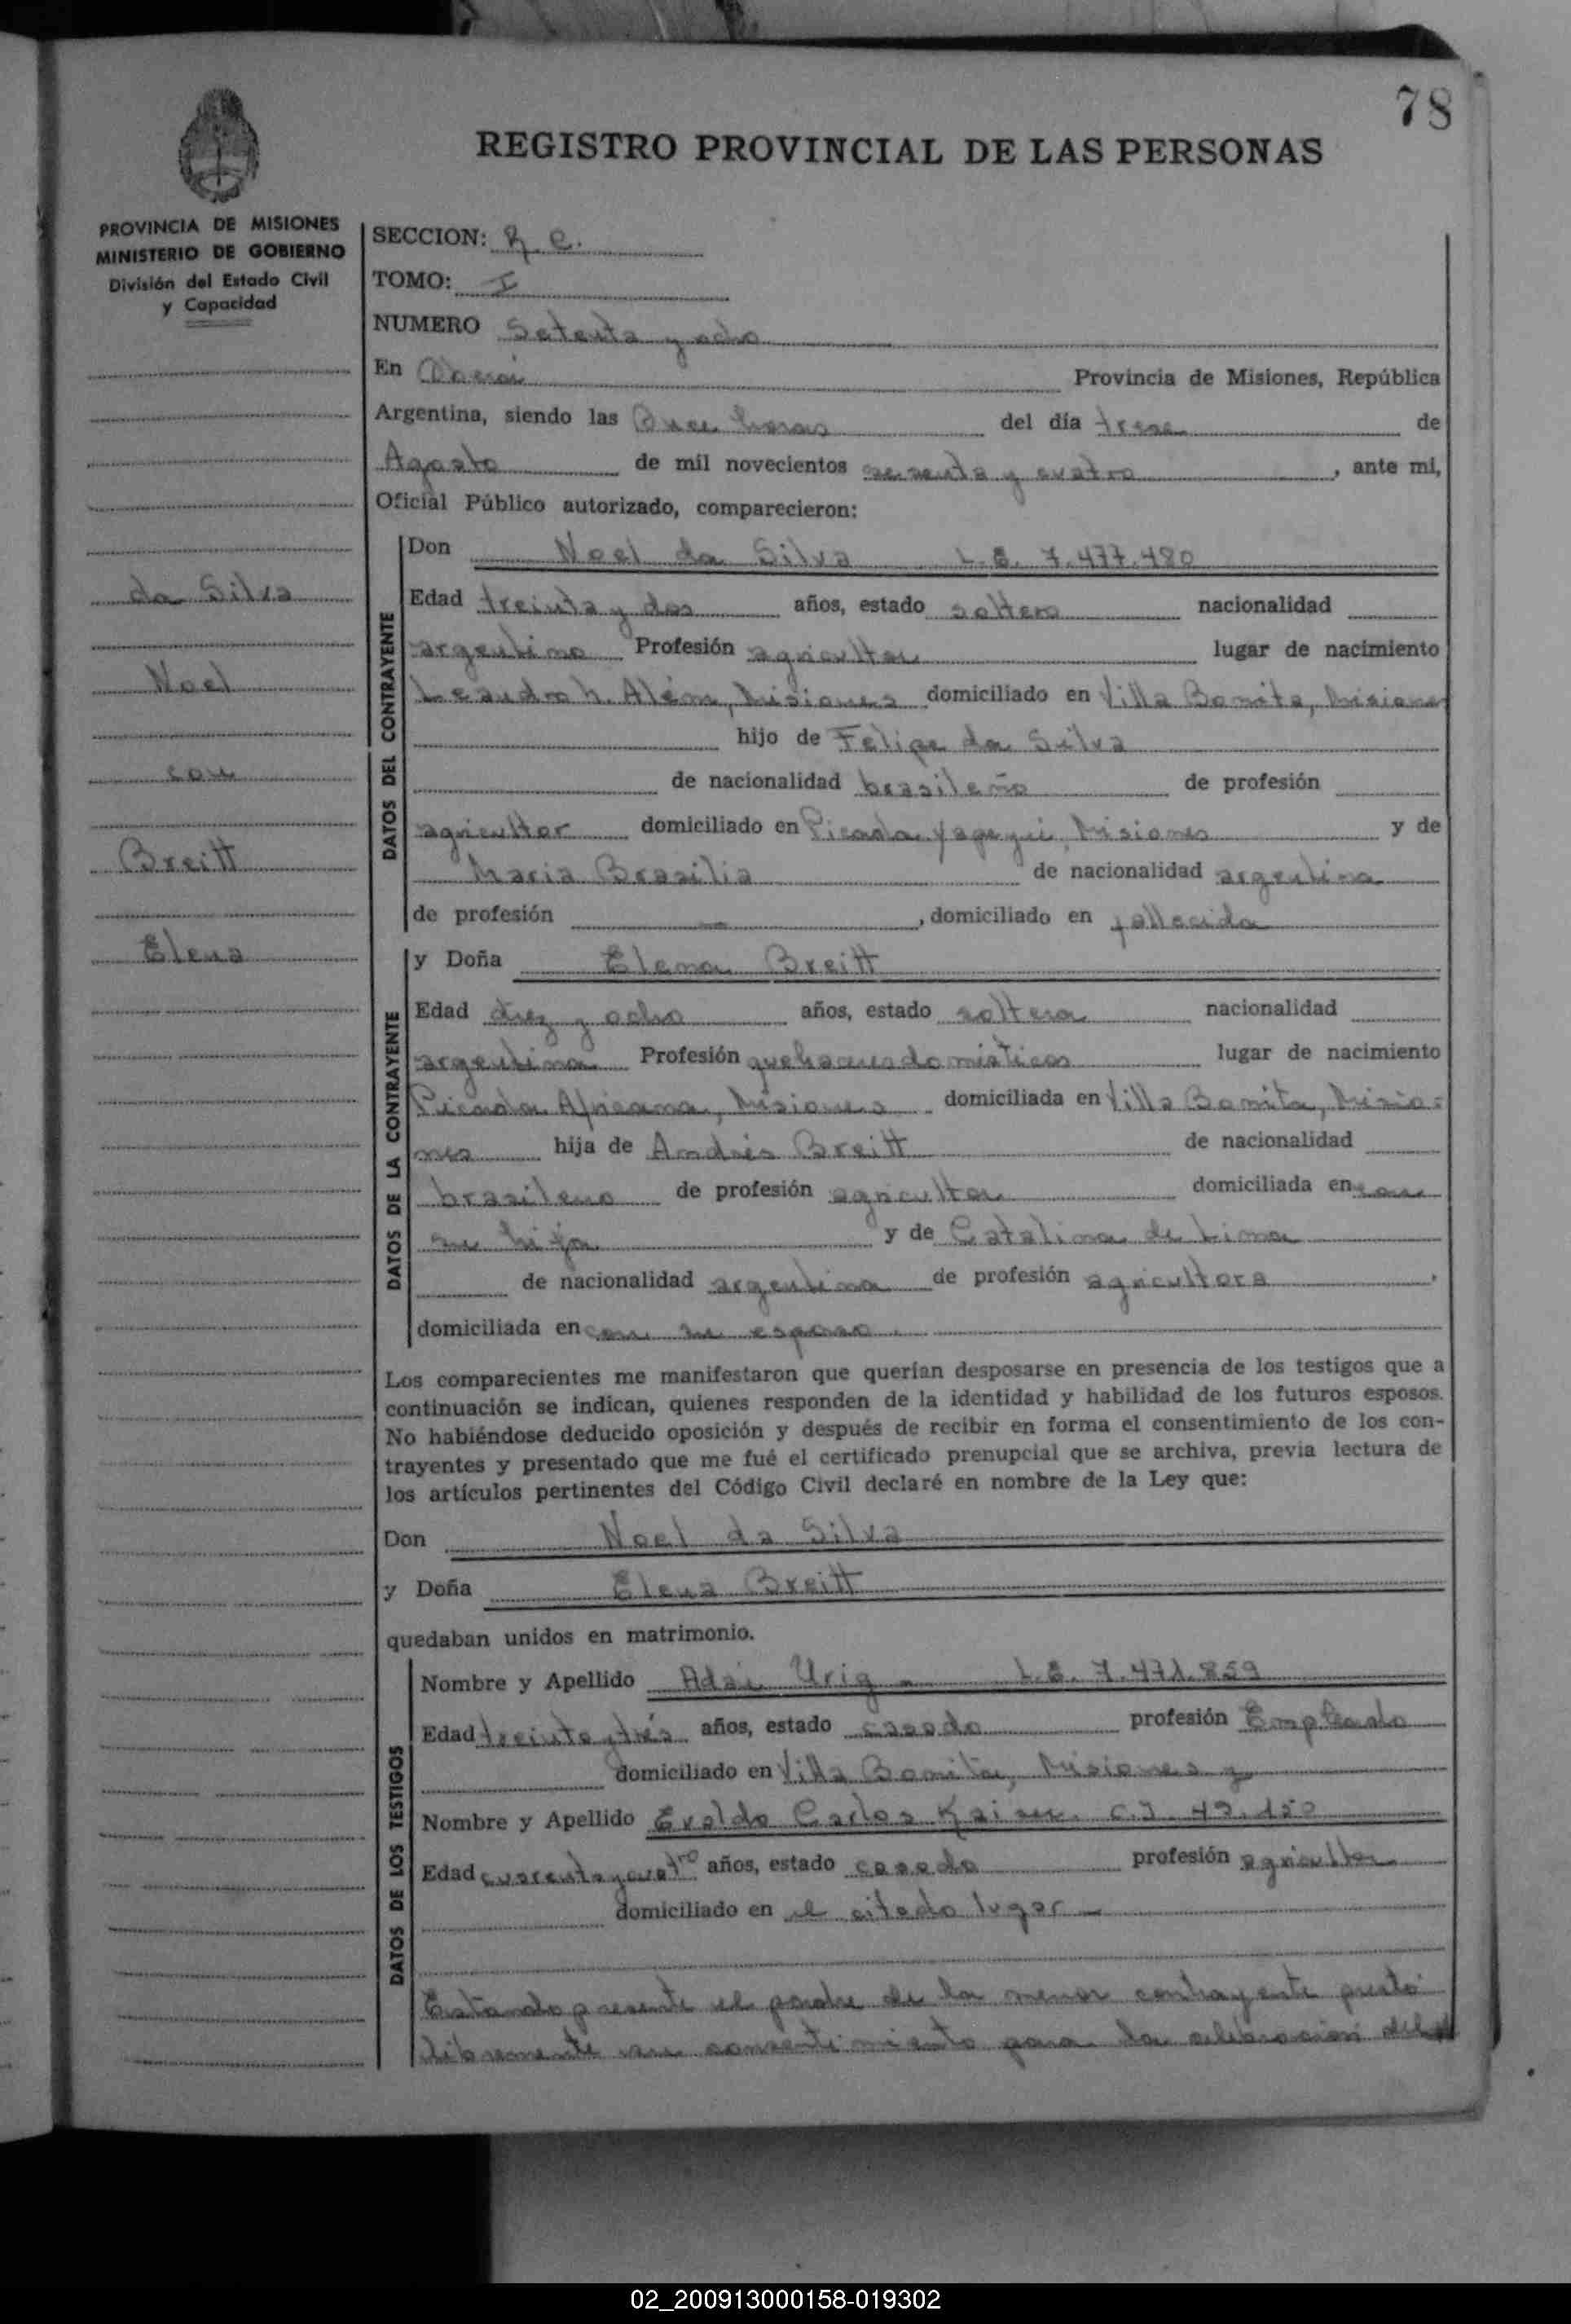 78
REGISTRO PROVINCIAL DE LAS PERSONAS
PROVINCIA DE MISIONES
MINISTERIO DE GOBIERNO
División del Estado Civil
y Capacidad
da Silva
Noel
con
Breitt
Elena
SECCION: R C.
TOMO: I
NUMERO Setenta y ocho
En Oberá Provincia de Misiones, República
Argentina, siendo las Once horas del día trece de
Agosto de mil novecientos sesenta y cuatro, ante mi,
Oficial Público autorizado, comparecieron:
DATOS DEL CONTRAYENTE
Don Noel da Silva L.E. 7.477.480
Edad treinta y dos años, estado soltero nacionalidad
argentino Profesión agricultor lugar de nacimiento
Leandro N. Além, Misiones domiciliado en Villa Bonita, Misiones
hijo de Felipe da Silva
de nacionalidad brasileño de profesión
agricultor domiciliado en Picada Yapeyú, Misiones y de
Maria Brasilia de nacionalidad argentina
de profesión —, domiciliado en fallecida
DATOS DE LA CONTRAYENTE
y Doña Elena Breitt
Edad diez y ocho años, estado soltera nacionalidad
argentina Profesión quehaceres domésticos lugar de nacimiento
Picada Africana, Misiones domiciliada en Villa Bonita, Misio=
nes hija de Andrés Breitt de nacionalidad
brasileno de profesión agricultor domiciliada en con
su hija y de Catalina de Lima
de nacionalidad argentina de profesión agricultora,
domiciliada en con su esposo.
Los comparecientes me manifestaron que querían desposarse en presencia de los testigos que a
continuación se indican, quienes responden de la identidad y habilidad de los futuros esposos.
No habiéndose deducido oposición y después de recibir en forma el consentimiento de los con-
trayentes y presentado que me fué el certificado prenupcial que se archiva, previa lectura de
los artículos pertinentes del Código Civil declaré en nombre de la Ley que:
Don Noel da Silva
y Doña Elena Breitt
quedaban unidos en matrimonio.
DATOS DE LOS TESTIGOS
Nombre y Apellido Adái Urig - L.E. 7.471.859
Edad treinta y trés años, estado casado profesión Empleado
domiciliado en Villa Bonita, Misiones y
Nombre y Apellido Evaldo Carlos Kaiser. C.I. 49.150
Edad cuarenta y cuatro años, estado casado profesión agricultor
domiciliado en el citado lugar -
Estando presente el padre de la menor contrayente prestó
libremente su consentimiento para la celebración del
02_200913000158-019302